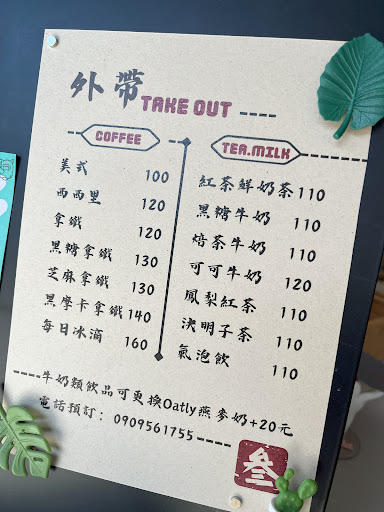 外帶 TAKE OUT
COFFEE
美式 100
西西里 120
拿鐵 120
黑糖拿鐵 130
芝麻拿鐵 130
黑摩卡拿鐵 140
每日冰滴 160
TEA.MILK
紅茶鮮奶茶 110
黑糖牛奶 110
焙茶牛奶 110
可可牛奶 120
鳳梨紅茶 110
決明子茶 110
氣泡飲 110
牛奶類飲品可更換Oatly燕麥奶+20元
電話預訂：0909561755
叁